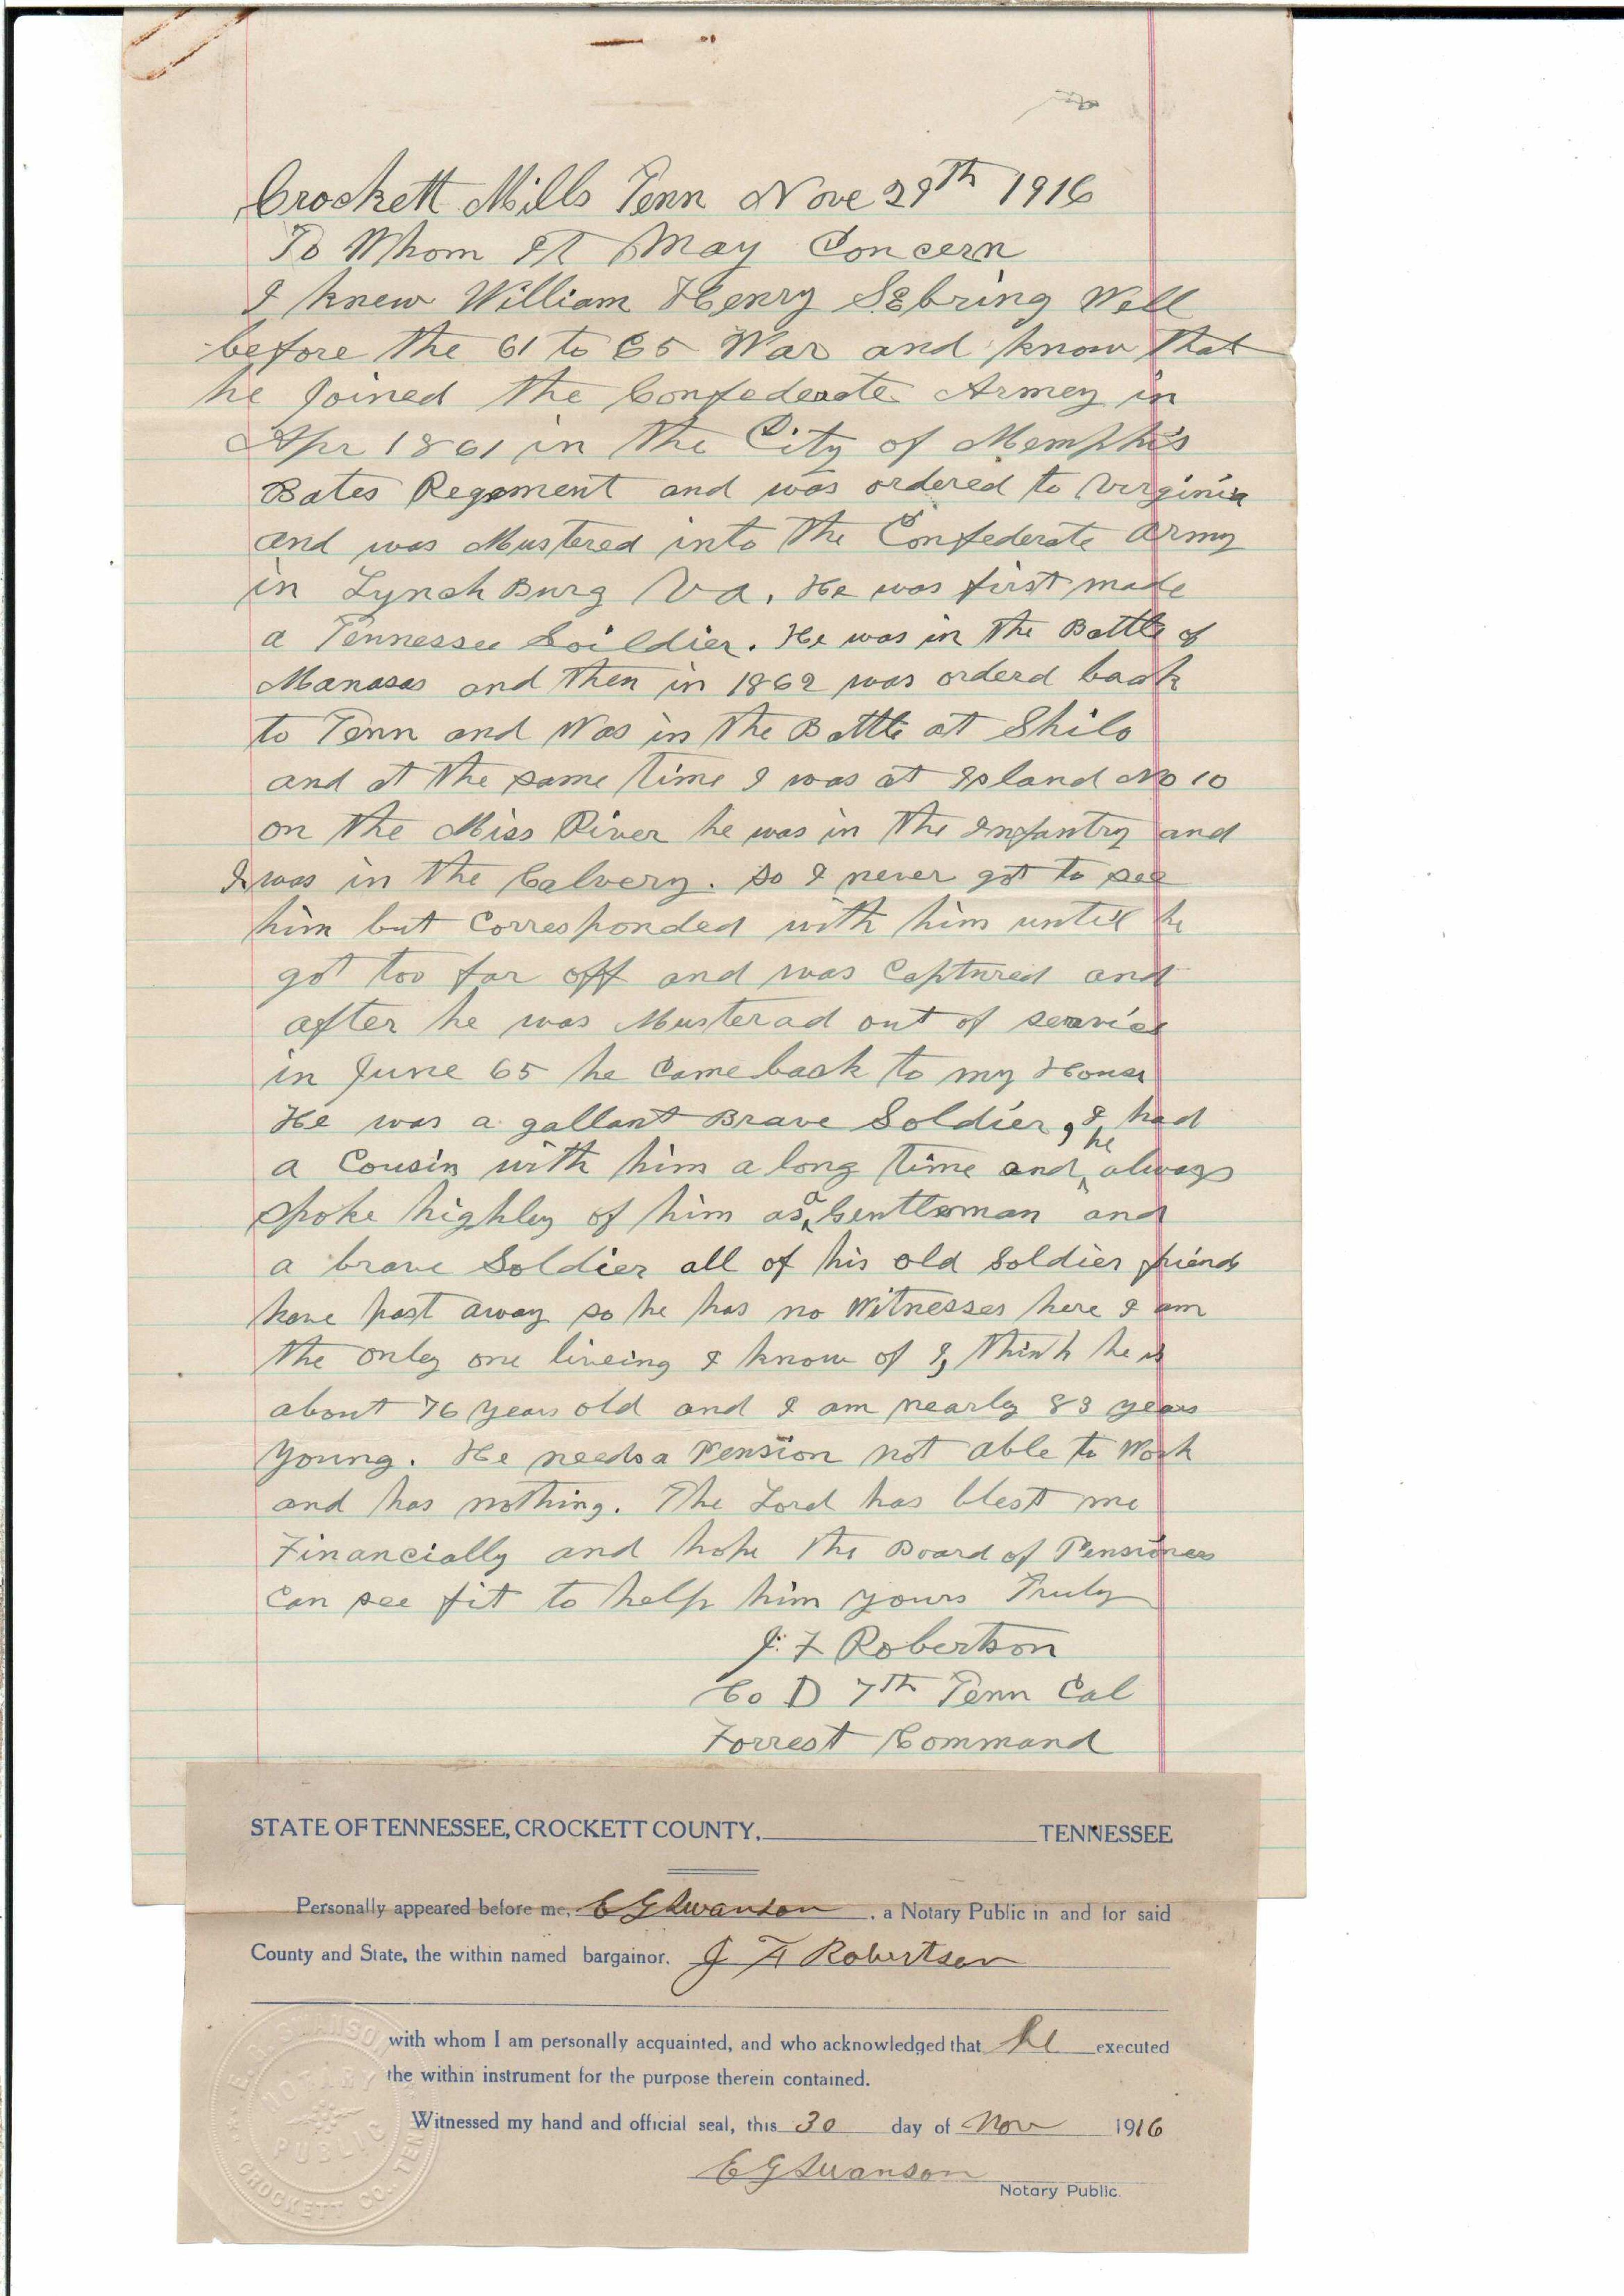 Crockett Mills Tenn Nove 29th 1916
To Whom It May Concern
I knew William Henry Sebring Well
before the 61 to 65 War and know that
he joined the Confedeate Armey in
Apr 1861 in the City of Memphis
Bates Regement and was ordered to Virginia
and was Mustered into the Confederate Army
in Lynch Burg Va. He was first made
a Tennessee Soildier. He was in the Battle of
Manasas and then in 1862 was orderd back
to Tenn and Was in the Battle at Shilo
and at the same time I was at Island No 10
on the Miss River he was in the Infantry and
I was in the Calvery. so I never got to see
him but Corresponded with him until he
got too far off and was Captured and
after he was Musterad out of service
in June 65 he Came back to my House
He was a gallant Brave Soldier, I had
a Cousin with him a long time and he always
spoke highley of him as a Gentleman and
a brave Soldier all of his old Soldier friends
have past away so he has no Witnesses here I am
the only one liveing I know of I, think he is
about 76 years old and I am nearly 83 years
young. He needs a Pension not able to Work
and has nothing. The Lord has blest me
Financially and hope the Board of Pensioners
Can see fit to help him yours Truly
J. F Robertson
Co D 7th Tenn Cal
Forrest Command
STATE OF TENNESSEE, CROCKETT COUNTY, TENNESSEE
Personally appeared before me, E G Swanson, a Notary Public in and for said
County and State, the within named bargainor. J F Robertson
with whom I am personally acquainted, and who acknowledged that he executed
the within instrument for the purpose therein contained.
Witnessed my hand and official seal, this 30 day of Nov 1916
E G Swanson
Notary Public.
E. G. SWANSON
NOTARY PUBLIC
CROCKETT CO., TENN